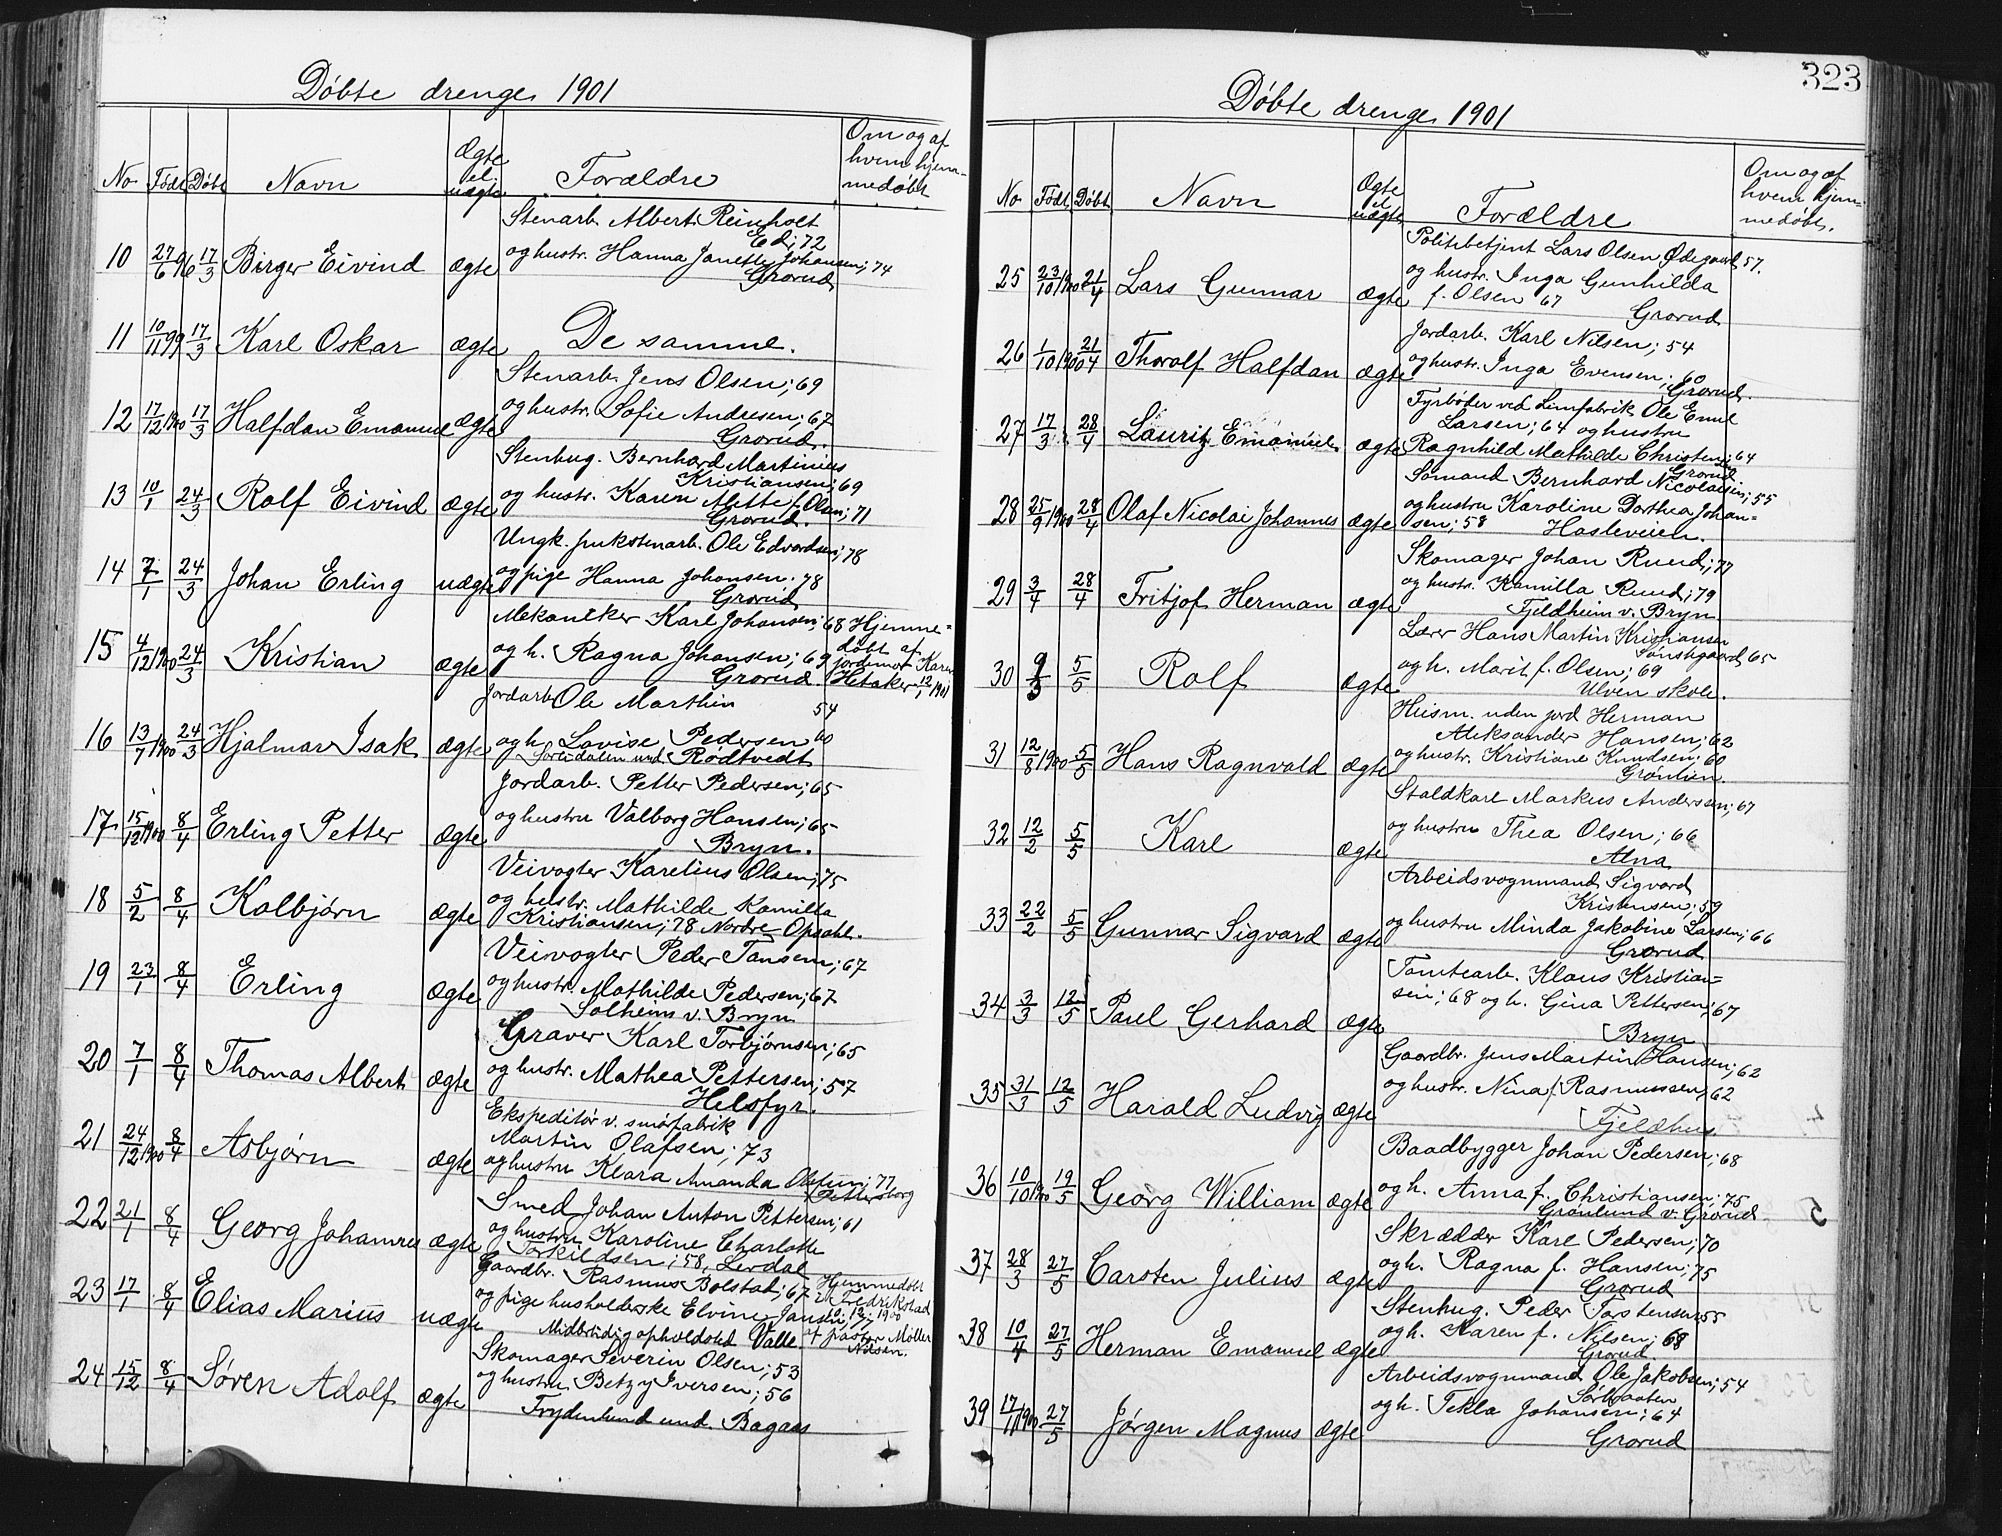 Døbte drenge 1901
No Født Døbt Navn Ægte el. uægte Forældre Om og af hvem hjem-medøbt
10 27/6 96 17/3 Birger Eivind ægte Stenarb. Albert Reinholt
Ed; 72
og hustr. Hanna Janette Johansen; 74
Grorud
11 10/11 99 17/3 Karl Oskar ægte De samme.
12 17/12 1900 17/3 Halfdan Emanuel ægte Stenarb. Jens Olsen; 69
og hustr. Sofie Andresen; 67
Grorud.
13 10/1 24/3 Rolf Eivind ægte Stenhug. Bernhard Martinius
Kristiansen; 69
og hustr. Karen Mette f. Olsen; 71
Grorud.
14 7/1 24/3 Johan Erling uægte Ungk. pukstenarb. Ole Edvardsen; 78
og pige Hanna Johansen. 78
Grorud
15 4/12 1900 24/3 Kristian ægte Mekaniker Karl Johansen; 68
og h. Ragna Johansen; 69
Grorud
Hjemme-
døbt af
jordemor Karen
Hetaker 12/1 1901
16 13/7 1900 24/3 Hjalmar Isak ægte Jordarb. Ole Marthin 54
og h. Lovise Pedersen 60
Sørlidalen und. Rødtvedt
17 15/12 1900 8/4 Erling Petter ægte Jordarb. Petter Pedersen; 65
og hustru Valborg Hansen; 65
Bryn.
18 5/2 8/4 Kolbjørn ægte Veivogter Karelius Olsen; 75
og hustr. Mathilde Kamilla
Kristiansen; 78 Nordre Opsahl.
19 23/1 8/4 Erling ægte Veivogter Peder Tansem; 67
og hustr. Mathilde Pedersen; 67
Solheim v. Bryn
20 7/1 8/4 Thomas Albert ægte Graver Karl Torbjørnsen; 65
og hustr. Mathea Pettersen; 57
Helsfyr.
21 24/12 1900 8/4 Asbjørn ægte Ekspeditør v. smørfabrik
Martin Olafsen; 73
og hustru Klara Amanda Olsen; 77
Pettersborg
22 21/1 8/4 Georg Johannes ægte Smed Johan Anton Pettersen; 61
og hustru Karoline Charlotte
Torkildsen; 58, Lerdal
23 17/1 8/4 Elias Marius uægte Gaardbr. Rasmus Bolstad; 67
og pige husholderske Elvine Jansen; 77
Midlertidig opholdsted Valle
Hjemmedøbt
i Fredrikstad
10.12.1900
af pastor Møller
Nilsen.
24 15/12 8/4 Søren Adolf ægte Skomager Severin Olsen; 53
og hustru Betzy Iversen; 56
Frydenlund und. Bagaas
323
Døbte drenge 1901
No Født Døbt Navn Ægte el. uægte Forældre Om og af hvem hjem-medøbt.
25 23/10 1900 21/4 Lars Gunnar ægte Politibetjent Lars Olsen Ødegaard 57.
og hustr. Inga Gunhilda
f. Olsen 67
Grorud
26 1/10 1900 21/4 Thorolf Halfdan ægte Jordarb. Karl Nilsen; 54
og hustr. Inga Evensen; 60
Grorud.
27 17/3 28/4 Lauritz Emanuel ægte Fyrbøder ved Limfabrik Ole Emil
Larsen; 64 og hustru
Ragnhild Mathilde Christens; 64
Grorud
28 25/9 1900 28/4 Olaf Nicolai Johannes ægte Sømand Bernhard Nicolaisen; 55
og hustru Karoline Dorthea Johan-
sen; 58 Hasleveien.
29 3/4 28/4 Fritjof Herman ægte Skomager Johan Ruud; 77
og hustr. Kamilla Ruud; 79
Fjeldheim v. Bryn
30 9/3 5/5 Rolf ægte Lærer Hans Martin Kristiansen
Sønstgaard 65
og h. Marit f. Olsen; 69
Ulven skole.
31 12/8 1900 5/5 Hans Ragnvald ægte Husm. uden jord Herman
Aleksander Hansen; 62
og hustr. Kristiane Knudsen; 60
Grønlien.
32 12/2 5/5 Karl ægte Staldkarl Markus Anderssen; 67
og hustru Thea Olsen; 66
Alna
33 22/2 5/5 Gunnar Sigvard ægte Arbeidsvognmand Sigvard
Kristensen; 59
og hustru Minda Jakobine Larsen; 66
Grorud
34 3/3 12/5 Paul Gerhard ægte Tomtearb. Klaus Kristian-
sen; 68 og h. Gina Pettersen; 67
Bryn
35 31/3 12/5 Harald Ludvig ægte Gaardbr. Jens Martin Hansen; 62
og hustr. Nina f. Rasmussen; 62
Fjeldhus.
36 10/10 1900 19/5 Georg William ægte Baadbygger Johan Pedersen; 68
og h. Anna f. Christiansen; 75
Grønlund v. Grorud
37 28/3 27/5 Carsten Julius ægte Skrædder Karl Pedersen; 70
og h. Ragna f. Hansen; 75
Grorud
38 10/4 27/5 Herman Emanuel ægte Stenhug. Peder Torstensen 55
og h. Karen f. Nilsen; 68
Grorud
39 17/11 1900 27/5 Jørgen Magnus ægte Arbeidsvognmand Ole Jakobsen; 54
Sørbraaten
og h. Tekla Johansen; 64
Grorud